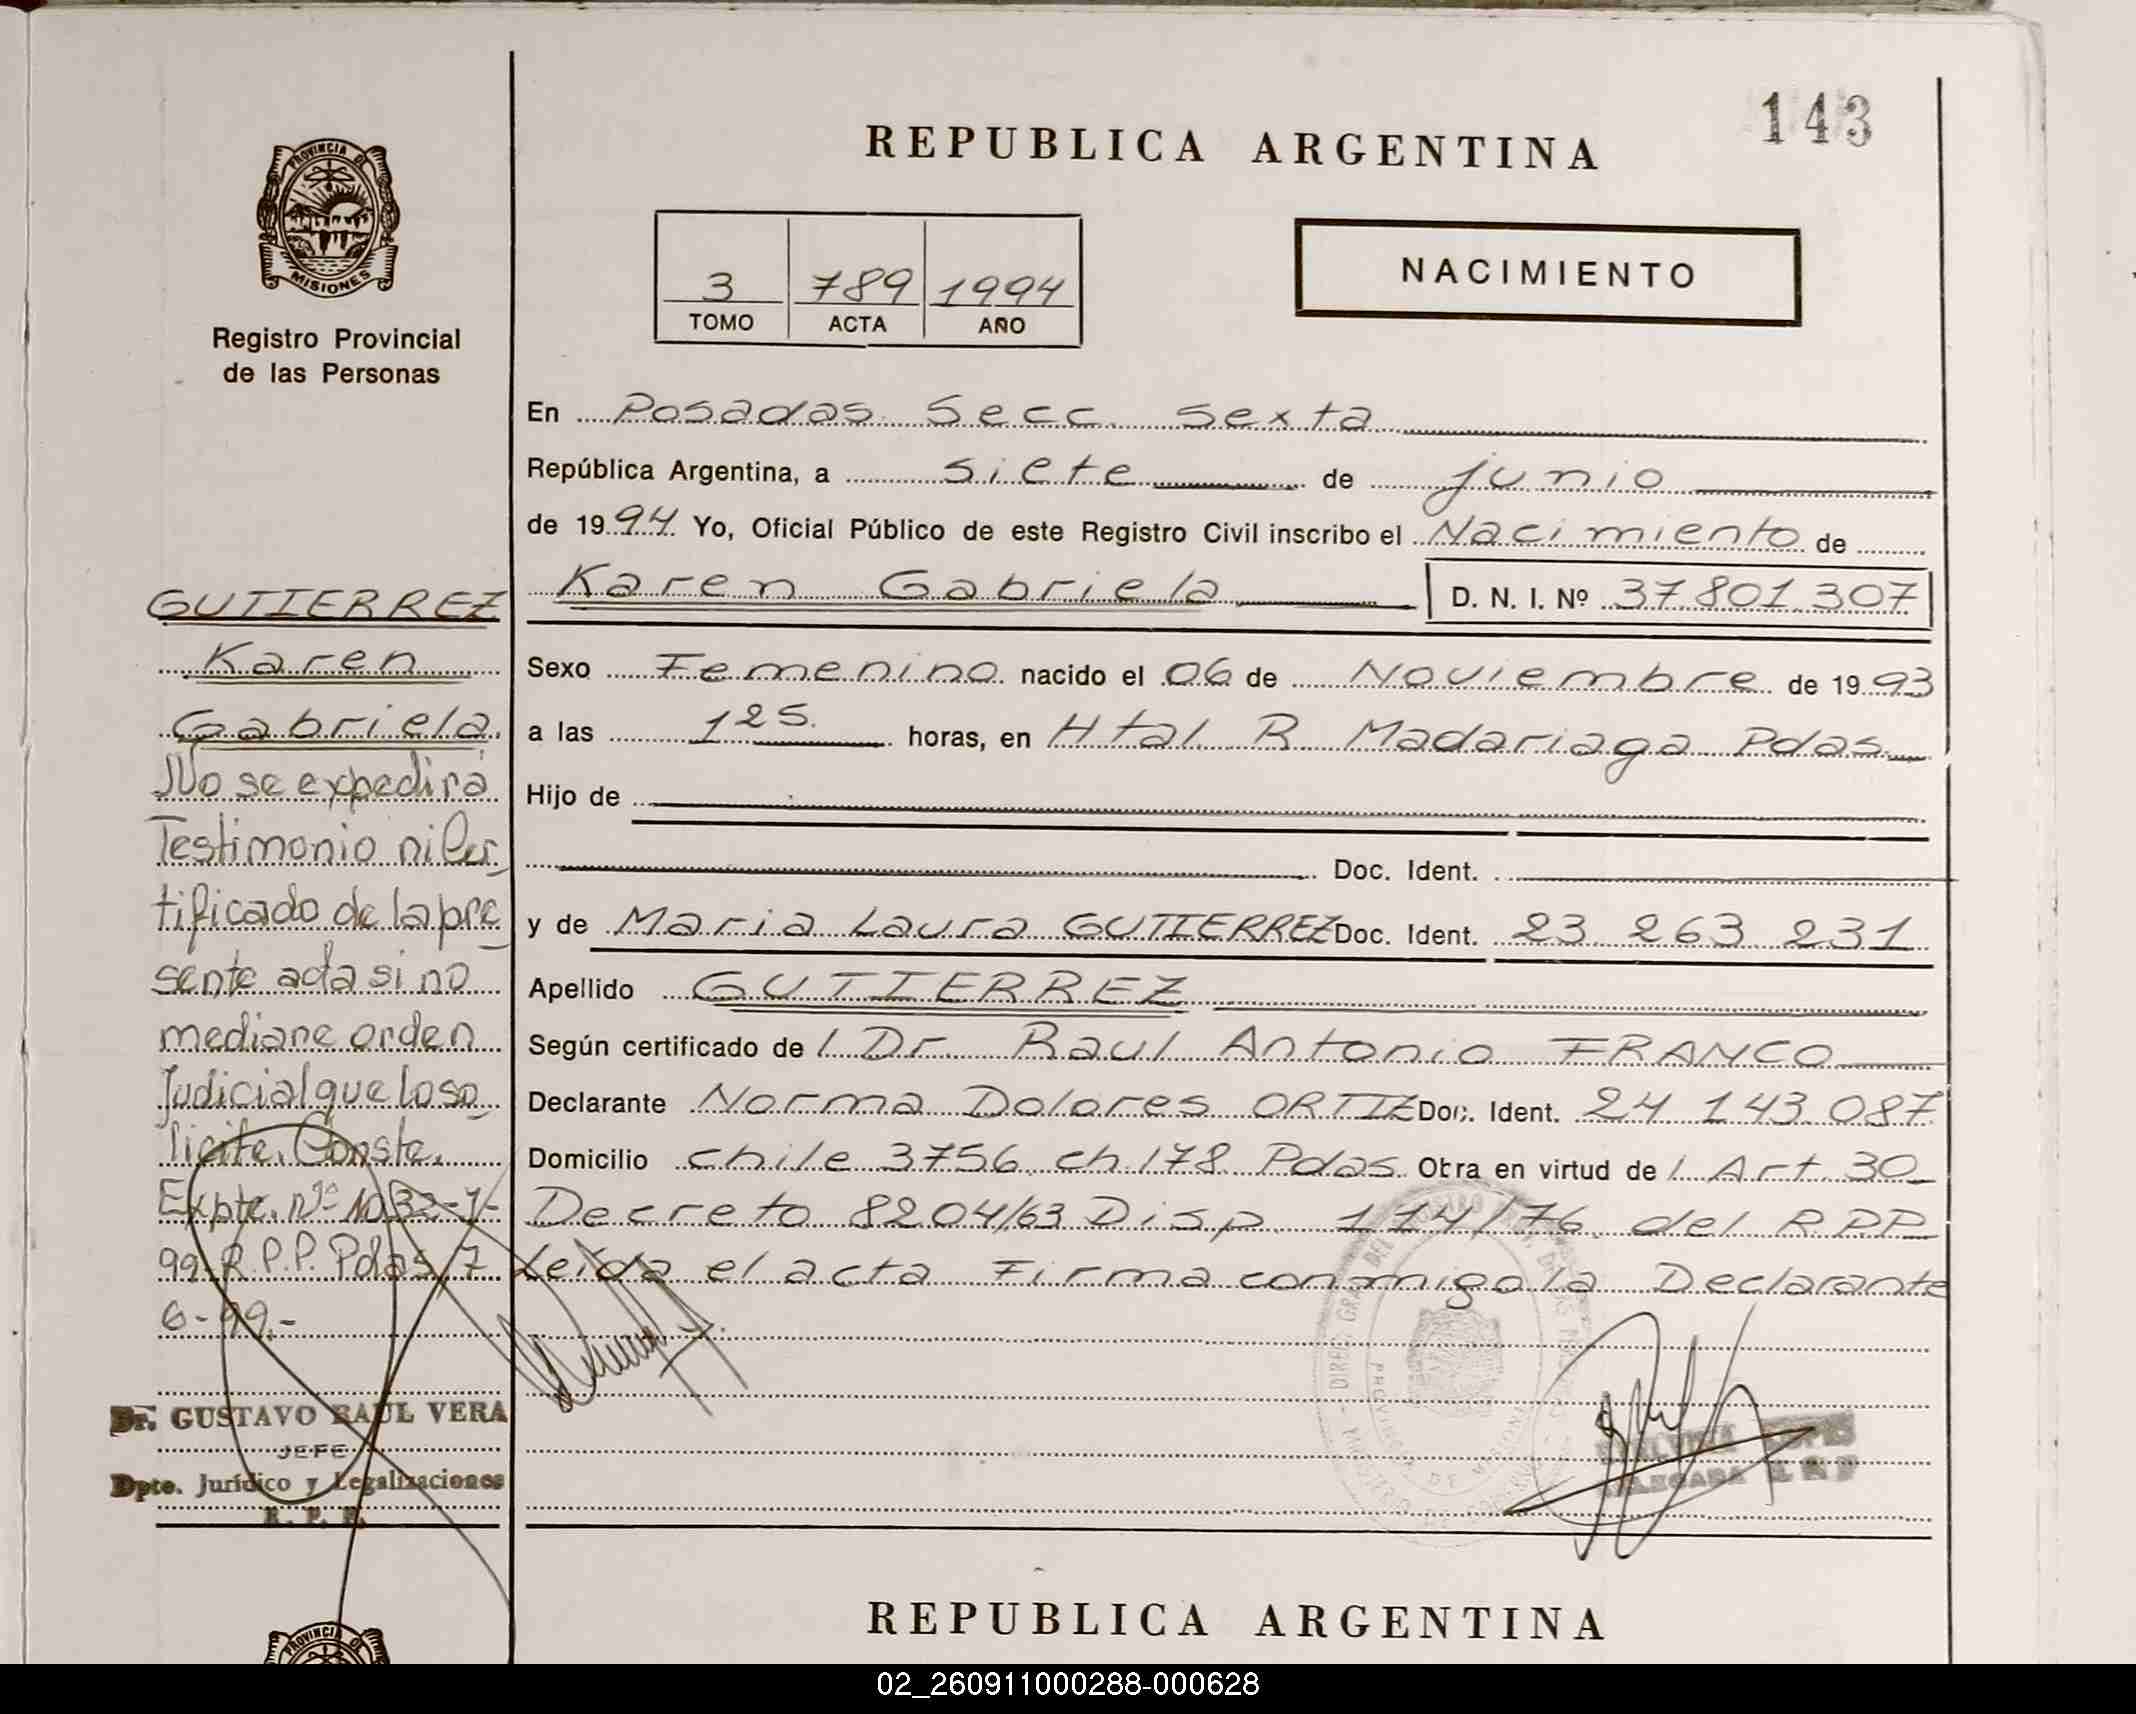 143
REPUBLICA ARGENTINA
PROVINCIA DE
MISIONES
Registro Provincial
de las Personas
3 789 1994
TOMO ACTA AÑO
NACIMIENTO
En Posadas Secc. Sexta
República Argentina, a siete de junio
de 1994 Yo, Oficial Público de este Registro Civil inscribo el Nacimiento de
Karen Gabriela D. N. I. Nº 37 801 307
Sexo Femenino nacido el 06 de Noviembre de 1993
a las 1 25 horas, en Htal R Madariaga Pdas
Hijo de
Doc. Ident.
y de Maria Laura GUTIERREZ Doc. Ident. 23 263 231
Apellido GUTIERREZ
Según certificado de l Dr. Raul Antonio FRANCO
Declarante Norma Dolores ORTIZ Doc. Ident. 24 143 087
Domicilio Chile 3756 ch 178 Pdas Obra en virtud de l Art. 30
Decreto 8204/63 Disp. 114/76 del R.P.P
Leída el acta Firma conmigo la Declarante
GUTIERREZ
Karen
Gabriela
No se expedirá
Testimonio ni Cer
tificado de la pre
sente acta si no
mediane orden
Judicial que lo so
licite. Conste.
Expte. nº 1032-Y-
99 R.P.P. Pdas 7
6-99.-
Dr. GUSTAVO RAUL VERA
JEFE
Dpto. Jurídico y Legalizaciones
R. P. P.
PROVINCIA DE MISIONES
REPUBLICA ARGENTINA
PROVINCIA
02_260911000288-000628